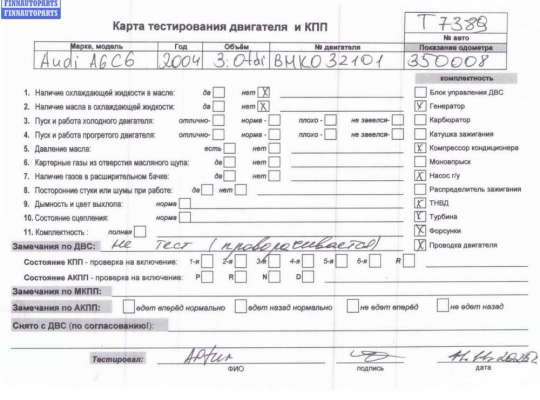 FINNAUTOPARTS
FINNAUTOPARTS
Карта тестирования двигателя и КПП
Т7389
№ авто
Марка, модель Год Объём № двигателя Показание одометра
Audi A6C6 2004 3.0tdi BMK032101 350008
комплектность
1. Наличие охлаждающей жидкости в масле: да нет X Блок управления ДВС
2. Наличие масла в охлаждающей жидкости: да нет X X Генератор
3. Пуск и работа холодного двигателя: отлично- норма - плохо - не завелся- Карбюратор
4. Пуск и работа прогретого двигателя: отлично- норма - плохо - не завелся- Катушка зажигания
5. Давление масла: есть нет X Компрессор кондиционера
6. Картерные газы из отверстия масляного щупа: да нет Моновпрыск
7. Наличие газов в расширительном бачке: да нет X Насос г/у
8. Посторонние стуки или шумы при работе: да нет Распределитель зажигания
9. Дымность и цвет выхлопа: норма X ТНВД
10. Состояние сцепления: норма X Турбина
11. Комплектность : полная X Форсунки
Замечания по ДВС: не тест (проворачивается) X Проводка двигателя
Состояние КПП - проверка на включение: 1-я 2-я 3-я 4-я 5-я 6-я R
Состояние АКПП - проверка на включение: P R N D
Замечания по МКПП:
Замечания по АКПП: едет вперёд нормально едет назад нормально не едет вперёд не едет назад
Снято с ДВС (по согласованию!):
Тестировал: Артur
ФИО подпись дата